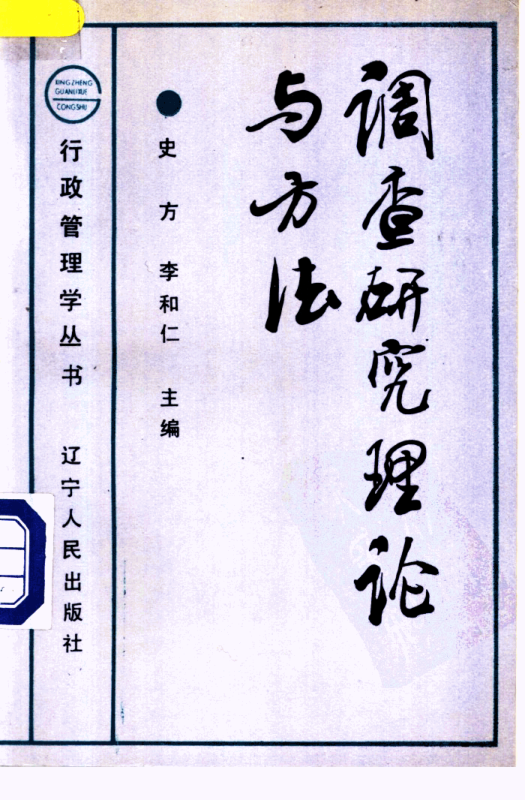 调查研究理论
与方法
史方 李和仁 主编
XINGZHENG
GUANLIXUE
CONGSHU
行政管理学丛书
辽宁人民出版社